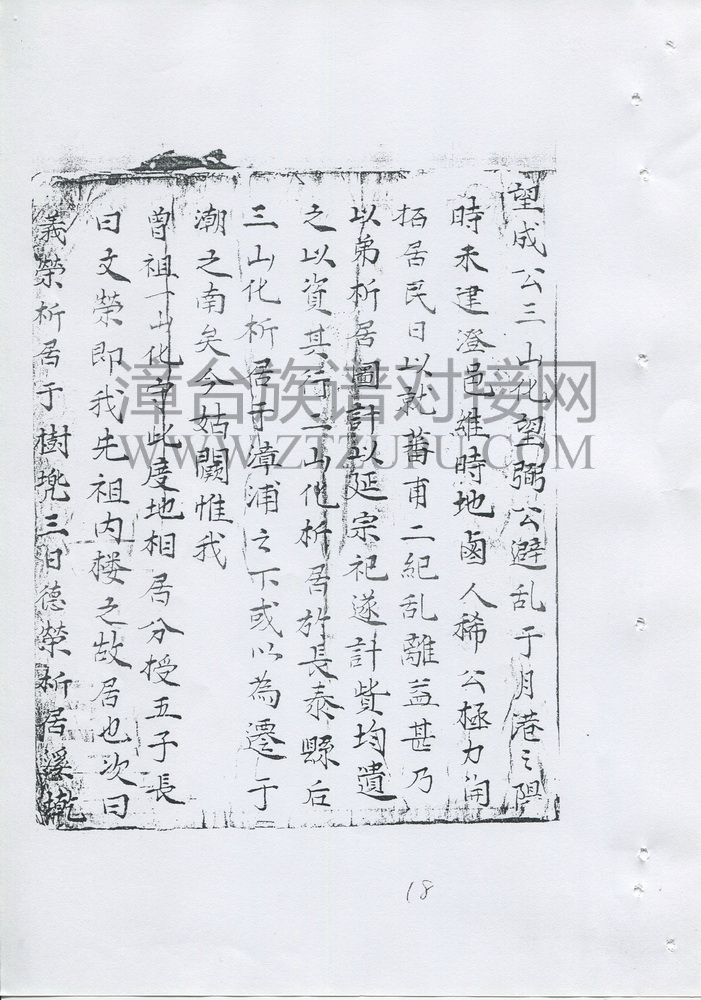 望成公三山化望弼公避乱于月港之隅
時未建澄邑維時地鹵人稀公極力開
拓居民日以就蕃甫二紀乱離益甚乃
以弟析居圖計以延宗祀遂計貲均遺
之以資其行二山化析居於長泰縣后
三山化析居于漳浦之下或以為遷于
潮之南矣今姑闕惟我
曾祖一山化字此度地相居分授五子長
曰文榮即我先祖内楼之故居也次曰
義榮析居于樹兠三曰德榮析居溪
漳台族谱对接网
WWW.ZTZUPU.COM
18